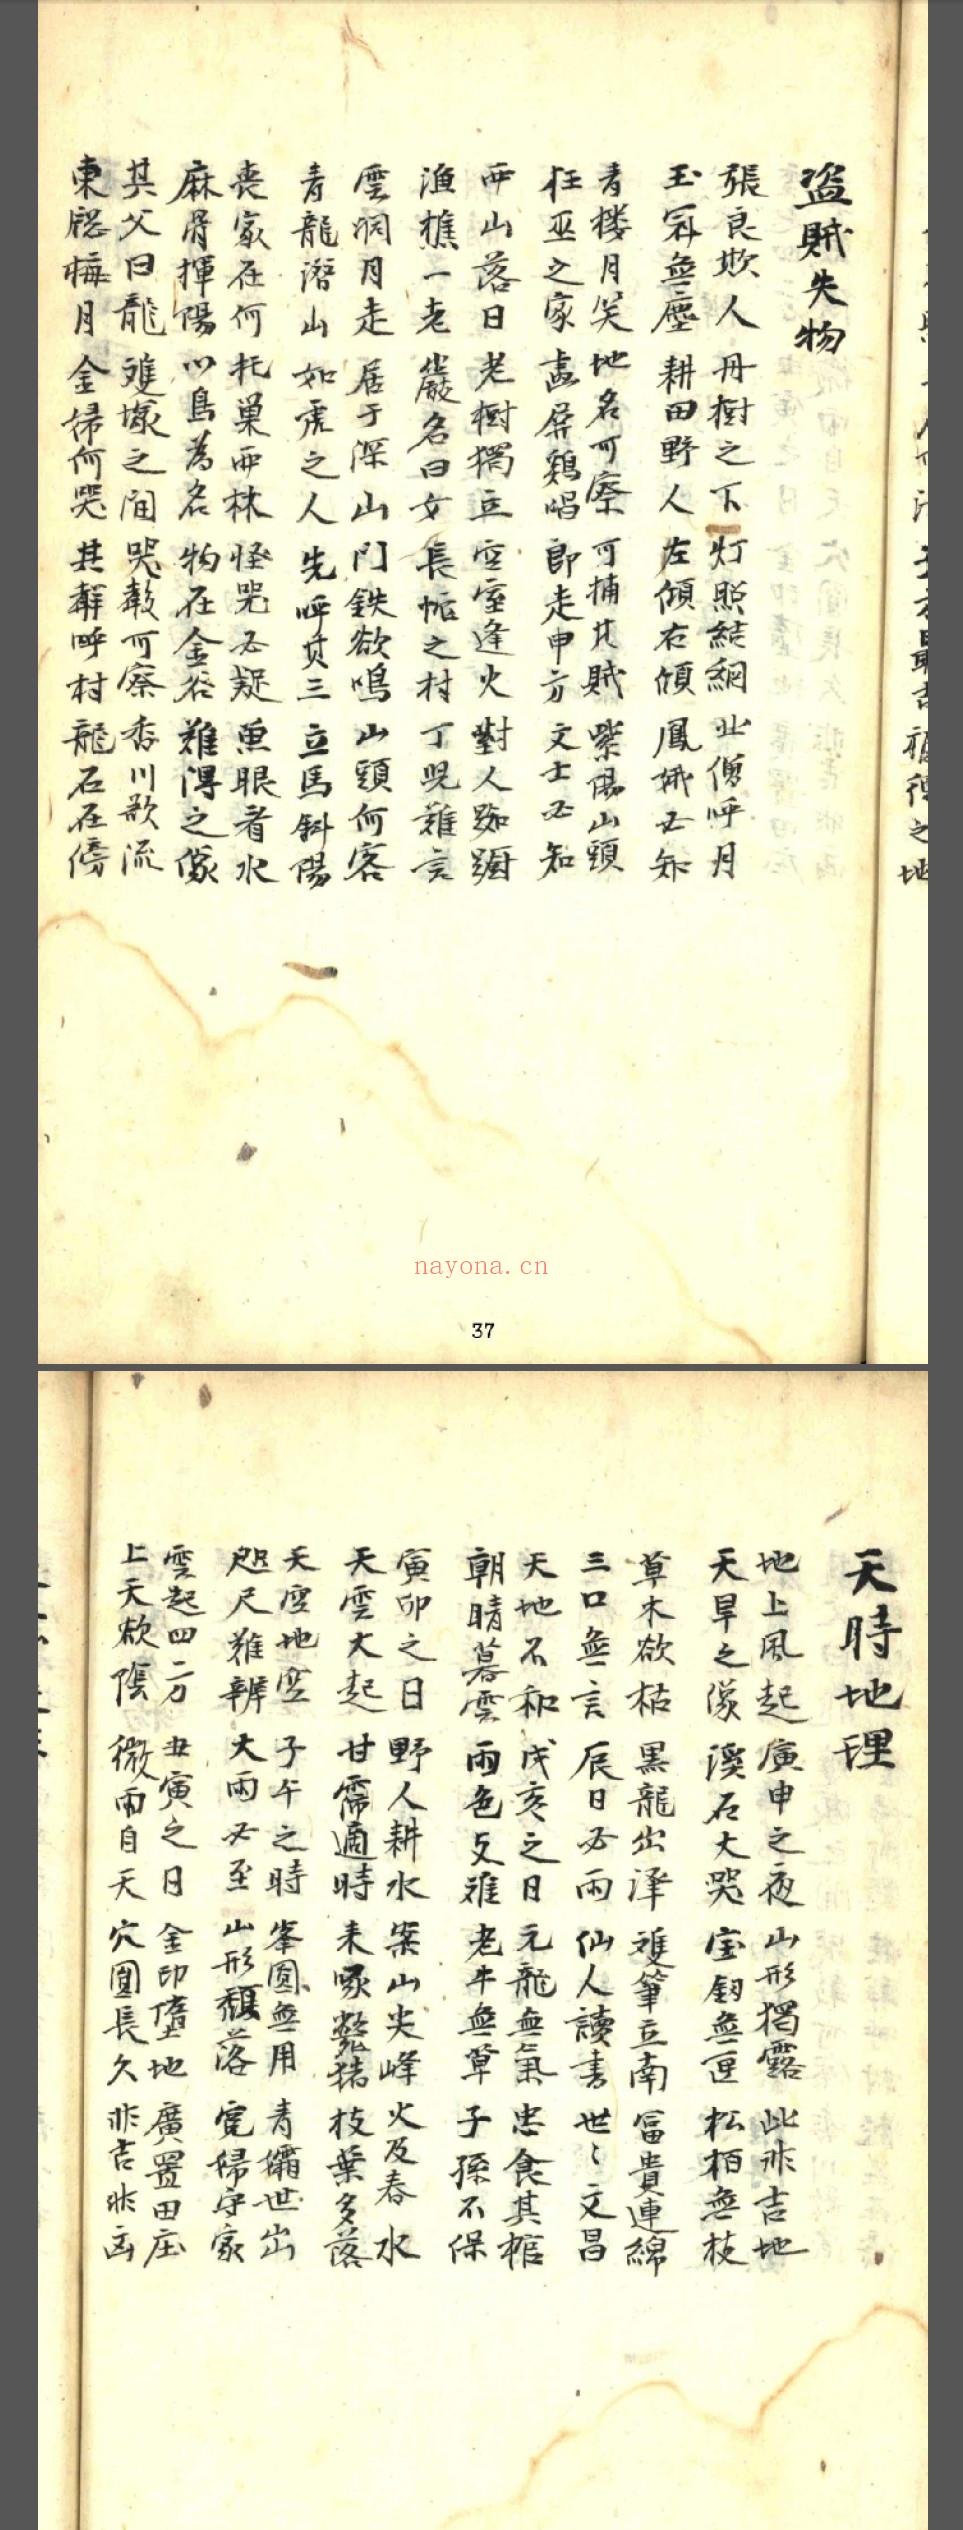 盜賊失物
張良欺人 丹樹之下 灯照結網 北僧呼月
玉冠無塵 耕田野人 左傾右傾 鳳城必知
青楼月笑 地名可察 可捕其賊 紫陽山頭
狂巫之家 畵屏鷄唱 郎走申方 文士必知
西山落日 老樹獨立 空室逢火 對人踟躕
漁樵一老 巖名曰女 長 之村 丁 難言
雲洞月走 居于深山 門鉄欲鳴 山頭何客
青龍潛山 如虎之人 先呼其三 立馬斜陽
喪家在何 托巢西林 怪哭必疑 魚眼看水
麻 揮陽 以鳥為名 物在金谷 難得之像
其父曰龍 雙塚之间 哭聲可察 香川歌流
東窓梅月 金婦何哭 其 呼村 龍石在傍
nayona.cn
37
天時地理
地上風起 庚申之夜 山形獨露 此非吉地
天旱之隊 溪石大哭 宝釰無匣 松栢無枝
草木欲枯 黑龍出泽 雙筆立南 冨貴連綿
三口無言 辰日必雨 仙人讀書 世〻文昌
天地不和 戊亥之日 元龍無氣 忠食其棺
朝晴暮雲 雨色 难 老牛無草 子孫不保
寅卯之日 野人耕水 案山尖峰 火及春水
天雲大起 甘霈適時 来啄 猪 枝葉多落
天空地空 子午之時 峯圓無用 青孀世出
咫尺難辨 大雨必至 山形頹落 寃婦守家
雲起四方 丑寅之日 金印墮地 廣置田庄
上天欲陰 微雨自天 穴圓長久 非吉非凶